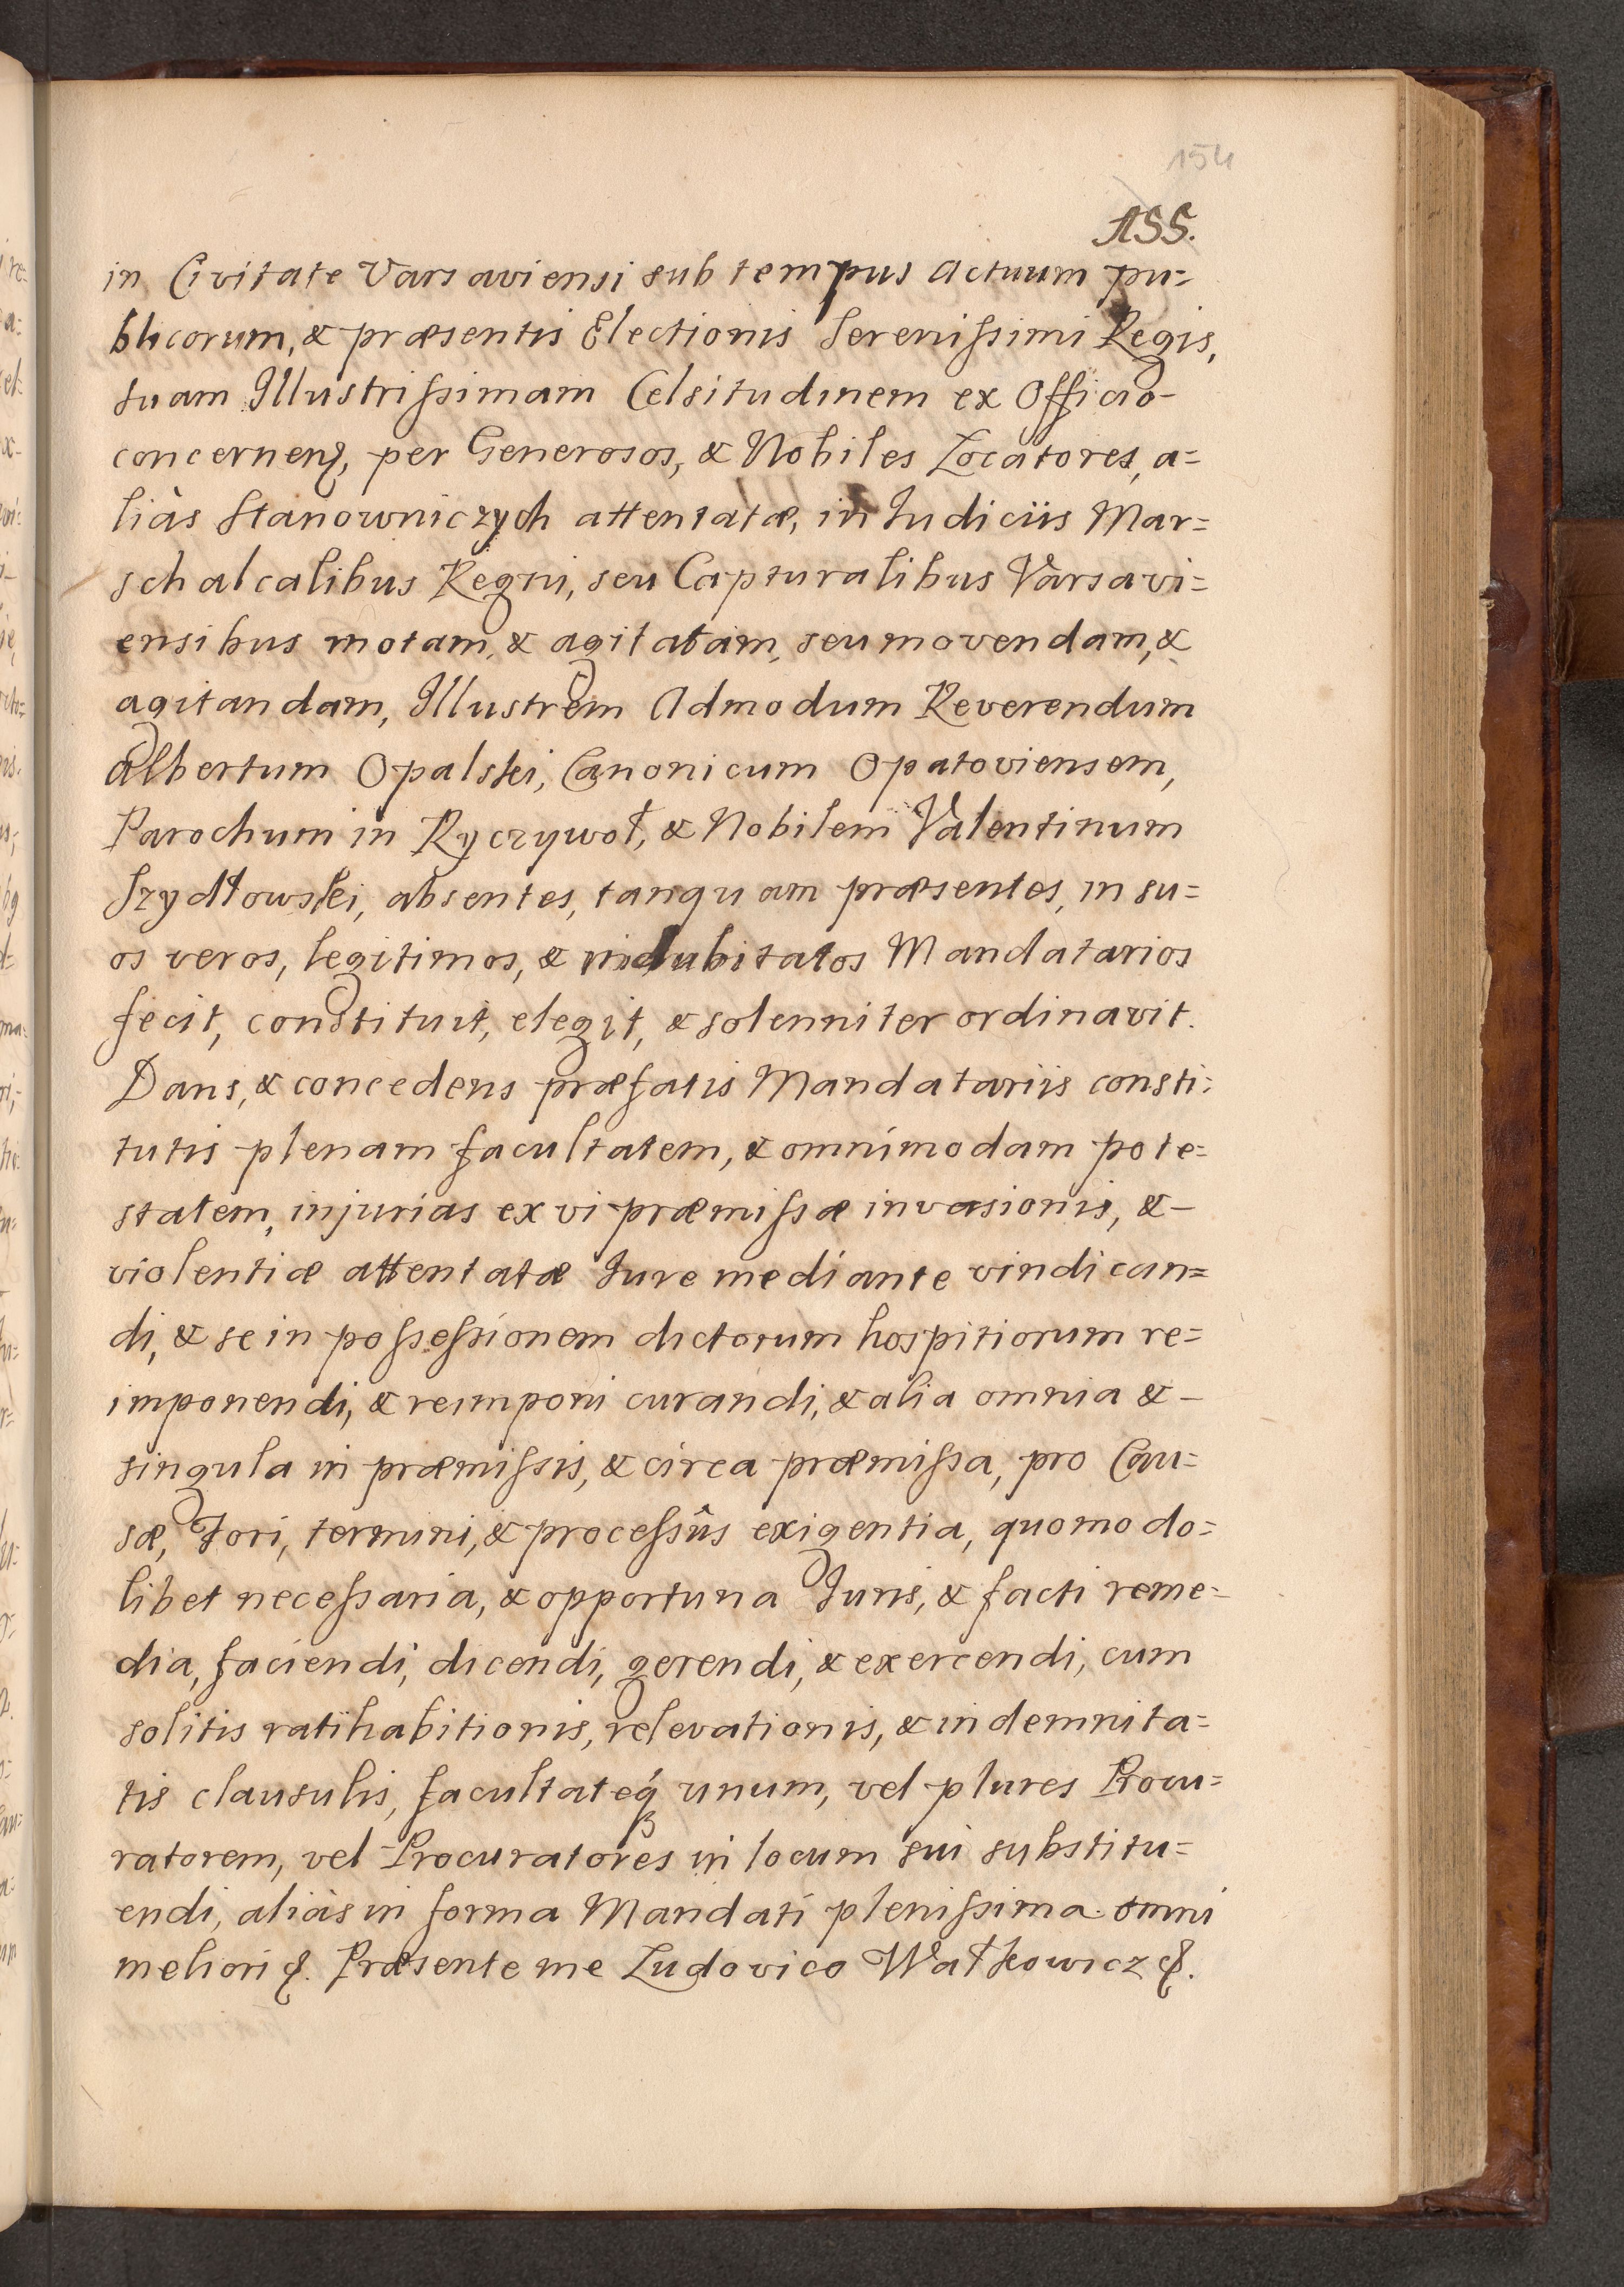 154
ASS.
in Civitate Varsaviensi sub tempus actuum pu=
blicorum, & præsentis Electionis Serenissimi Regis,
suam Illustrissimam Celsitudinem ex Officio-
concernenꝭ, per Generosos, & Nobiles Locatores, a=
liàs Stanowniczych attentatæ, in Judiciis Mar=
schalcalibus Regni, seu Capturalibus Varsavi=
ensibus motam, & agitatam, seu movendam, &
agitandam, Illustrem Admodum Reverendum
Albertum Opalski, Canonicum Opatoviensem,
Parochum in Ryczywoł, & Nobilem Valentinum
Szydłowski, absentes, tanquam præsentes, in su=
os veros, legitimos, & indubitatos Mandatarios
fecit, constituit, elegit, & solenniter ordinavit.
Dans, & concedens præfatis Mandatariis consti=
tutis plenam facultatem, & omnimodam pote=
statem, injurias ex vi præmissæ invasionis, &-
violentiæ attentatæ Jure mediante vindican=
di, & se in possessionem dictorum hospitiorum re=
imponendi, & reimponi curandi, & alia omnia &-
singula in præmissis, & circa præmissa, pro Cau=
sæ, Fori, termini, & processûs exigentia, quomodo=
libet necessaria, & opportuna Juris, & facti reme=
dia, faciendi, dicendi, gerendi, & exercendi, cum
solitis ratihabitionis, relevationis, & indemnita=
tis clausulis, facultateq́ꝫ unum, vel plures Procu=
ratorem, vel Procuratores in locum sui substitu=
endi, aliàs in forma Mandati plenissima omni
meliori &. Præsente me Ludovico Wałkowicz &.